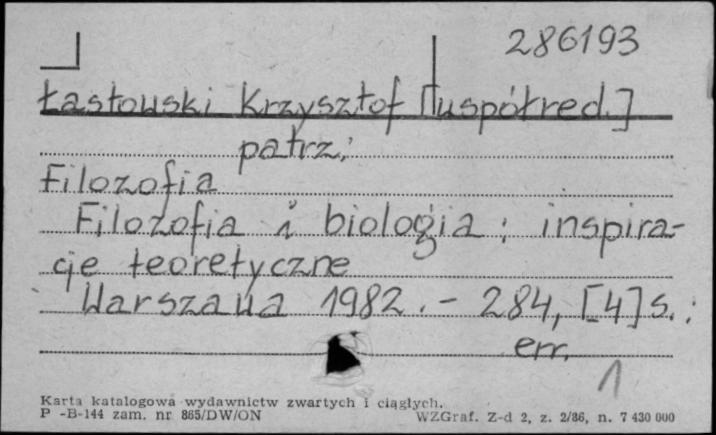 286193
Łastowski Krzysztof [współred.]
patrz:
Filozofia
Filozofia i biologia : inspira-
cje teoretyczne
Warszawa 1982. - 284, [4] s. :
err.
1
Karta katalogowa wydawnictw zwartych i ciągłych.
P -B-144 zam. nr 865/DW/ON WZGraf. Z-d 2, z. 2/86, n. 7 430 000